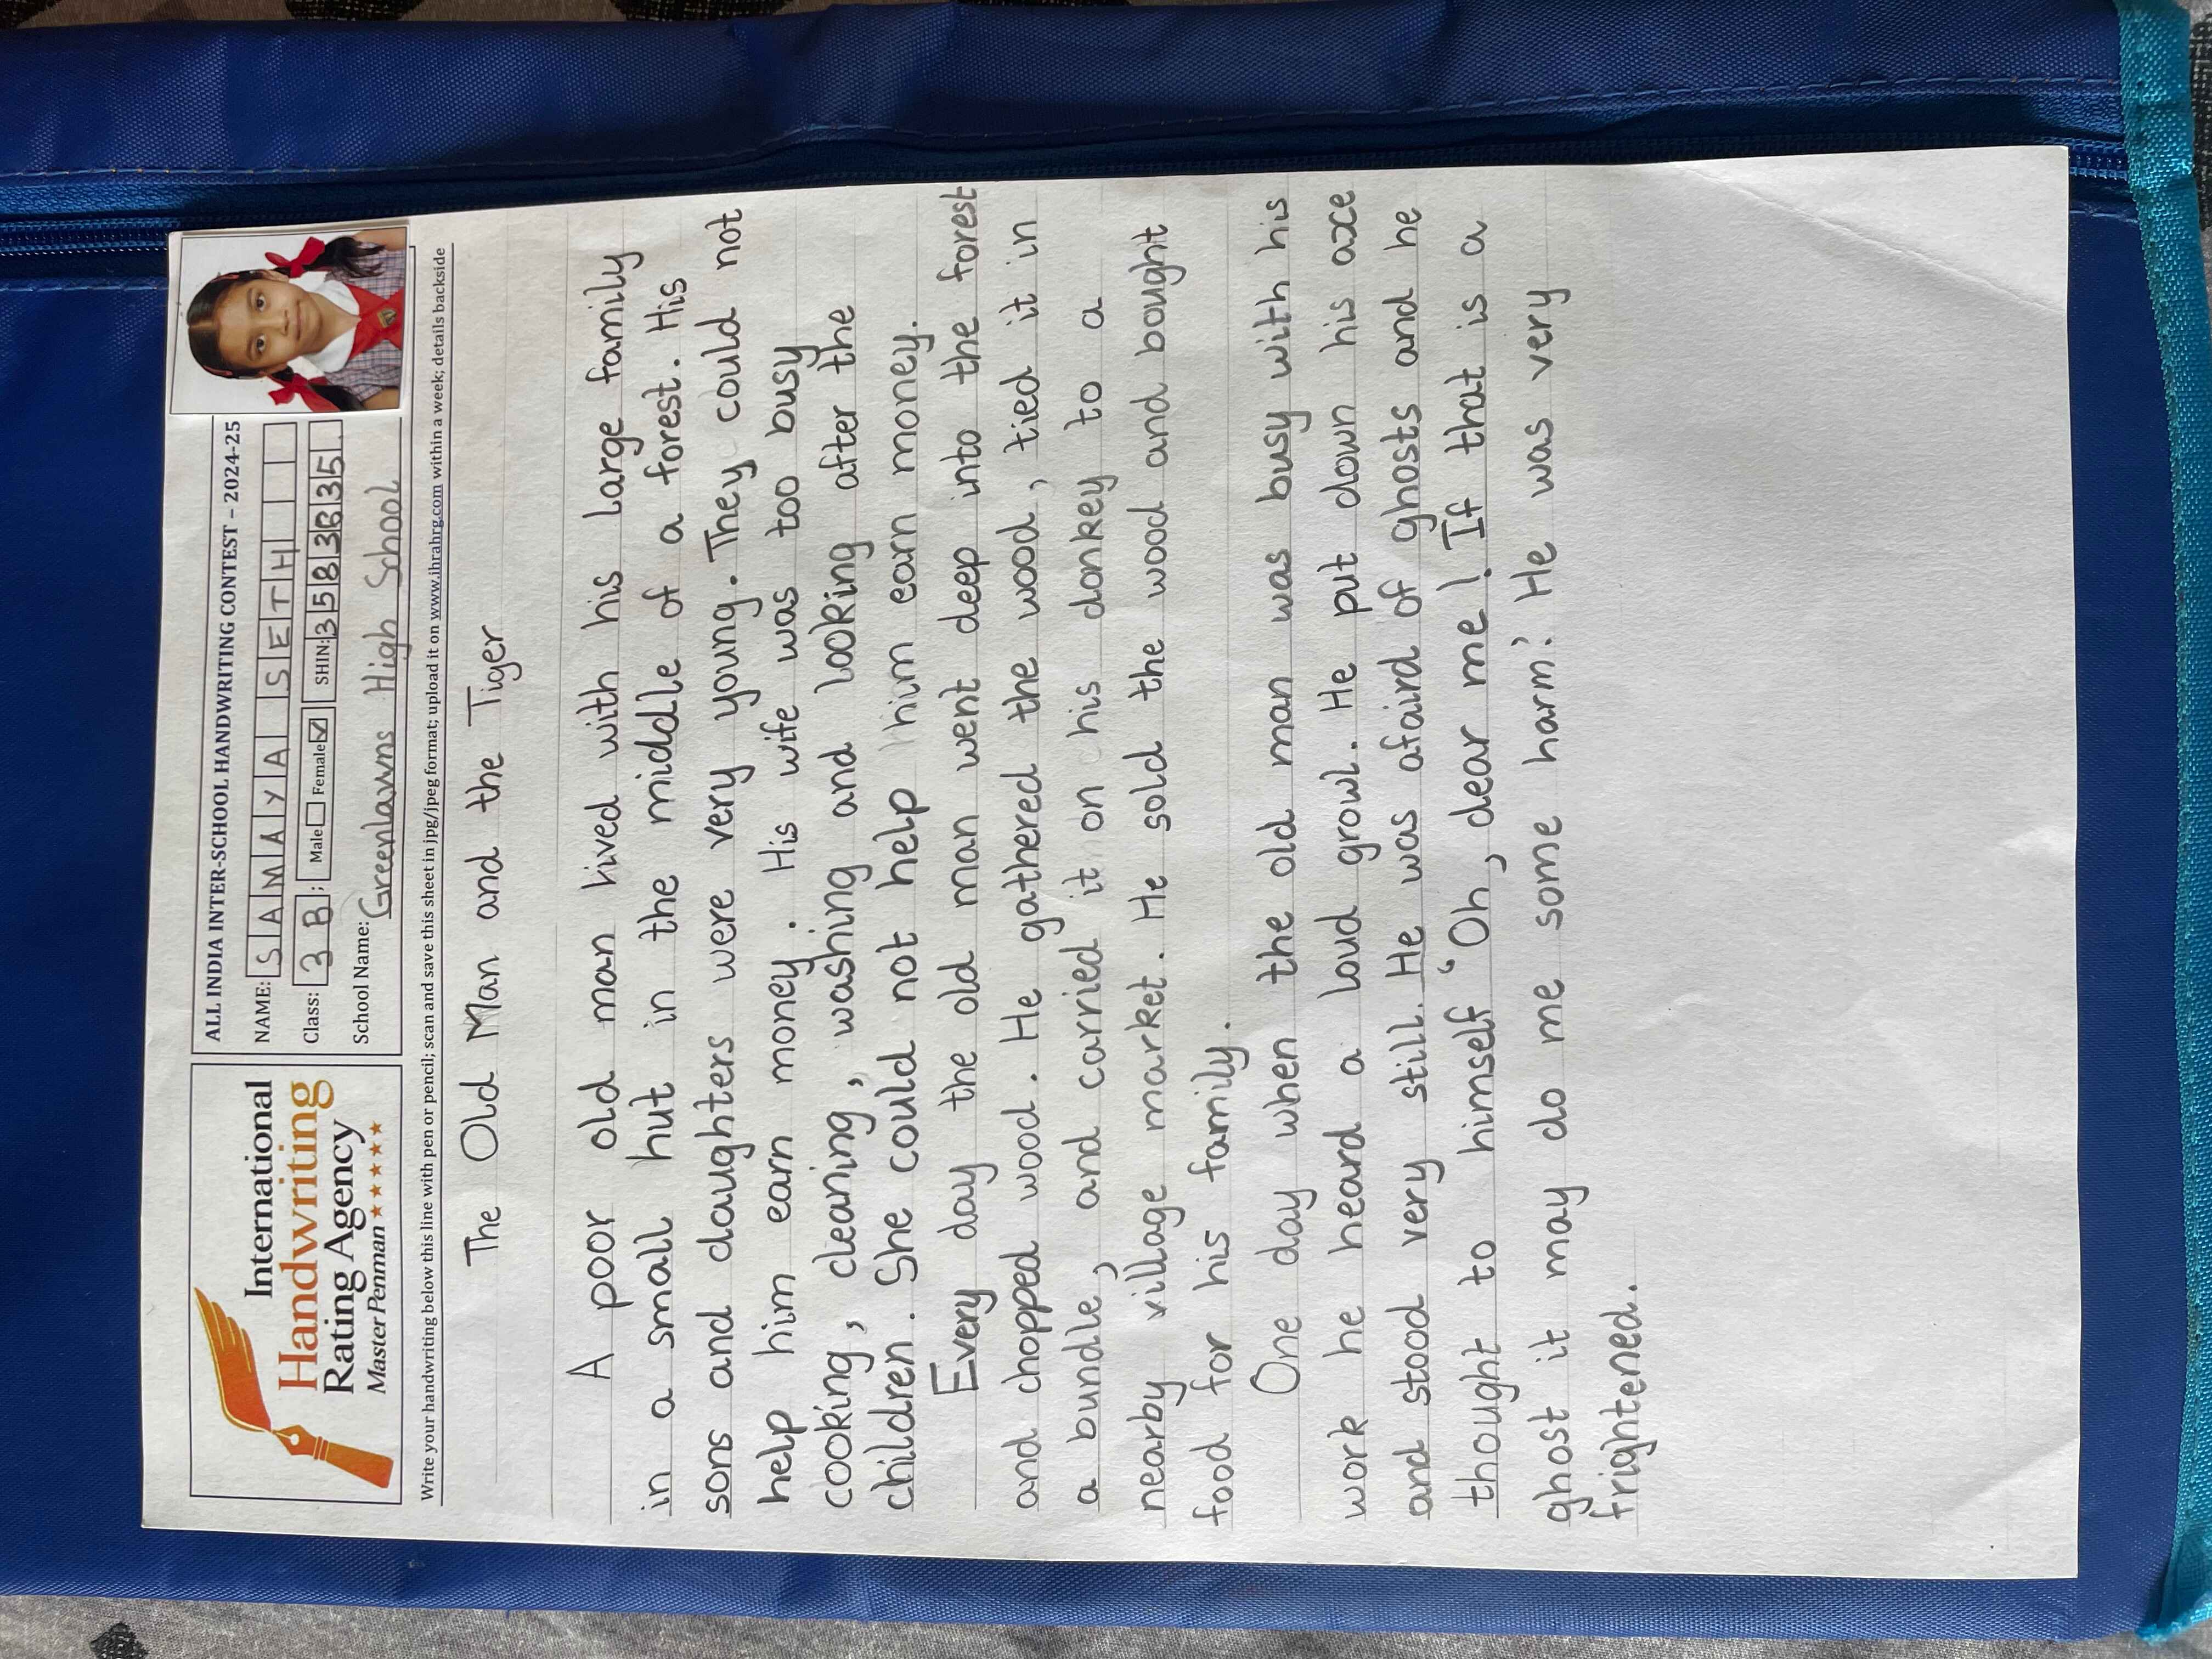 International
Handwriting
Rating Agency
Master Penman ★★★★★★
ALL INDIA INTER-SCHOOL HANDWRITING CONTEST – 2024-25
NAME: SAMAYA SETH
Class: 3 B ; Male☐ Female☑ SHIN: 3583B35
School Name: Greenlawns High School
Write your handwriting below this line with pen or pencil; scan and save this sheet in jpg/jpeg format; upload it on www.ihrahrg.com within a week; details backside
The Old Man and the Tiger
A poor old man lived with his large family
in a small hut in the middle of a forest. His
sons and daughters were very young. They could not
help him earn money. His wife was too busy
cooking, cleaning, washing and looking after the
children. She could not help him earn money.
Every day the old man went deep into the forest
and chopped wood. He gathered the wood, tied it in
a bundle, and carried it on his donkey to a
nearby village market. He sold the wood and bought
food for his family.
One day when the old man was busy with his
work he heard a loud growl. He put down his axe
and stood very still. He was afaird of ghosts and he
thought to himself 'Oh, dear me! If that is a
ghost it may do me some harm.' He was very
frightened.